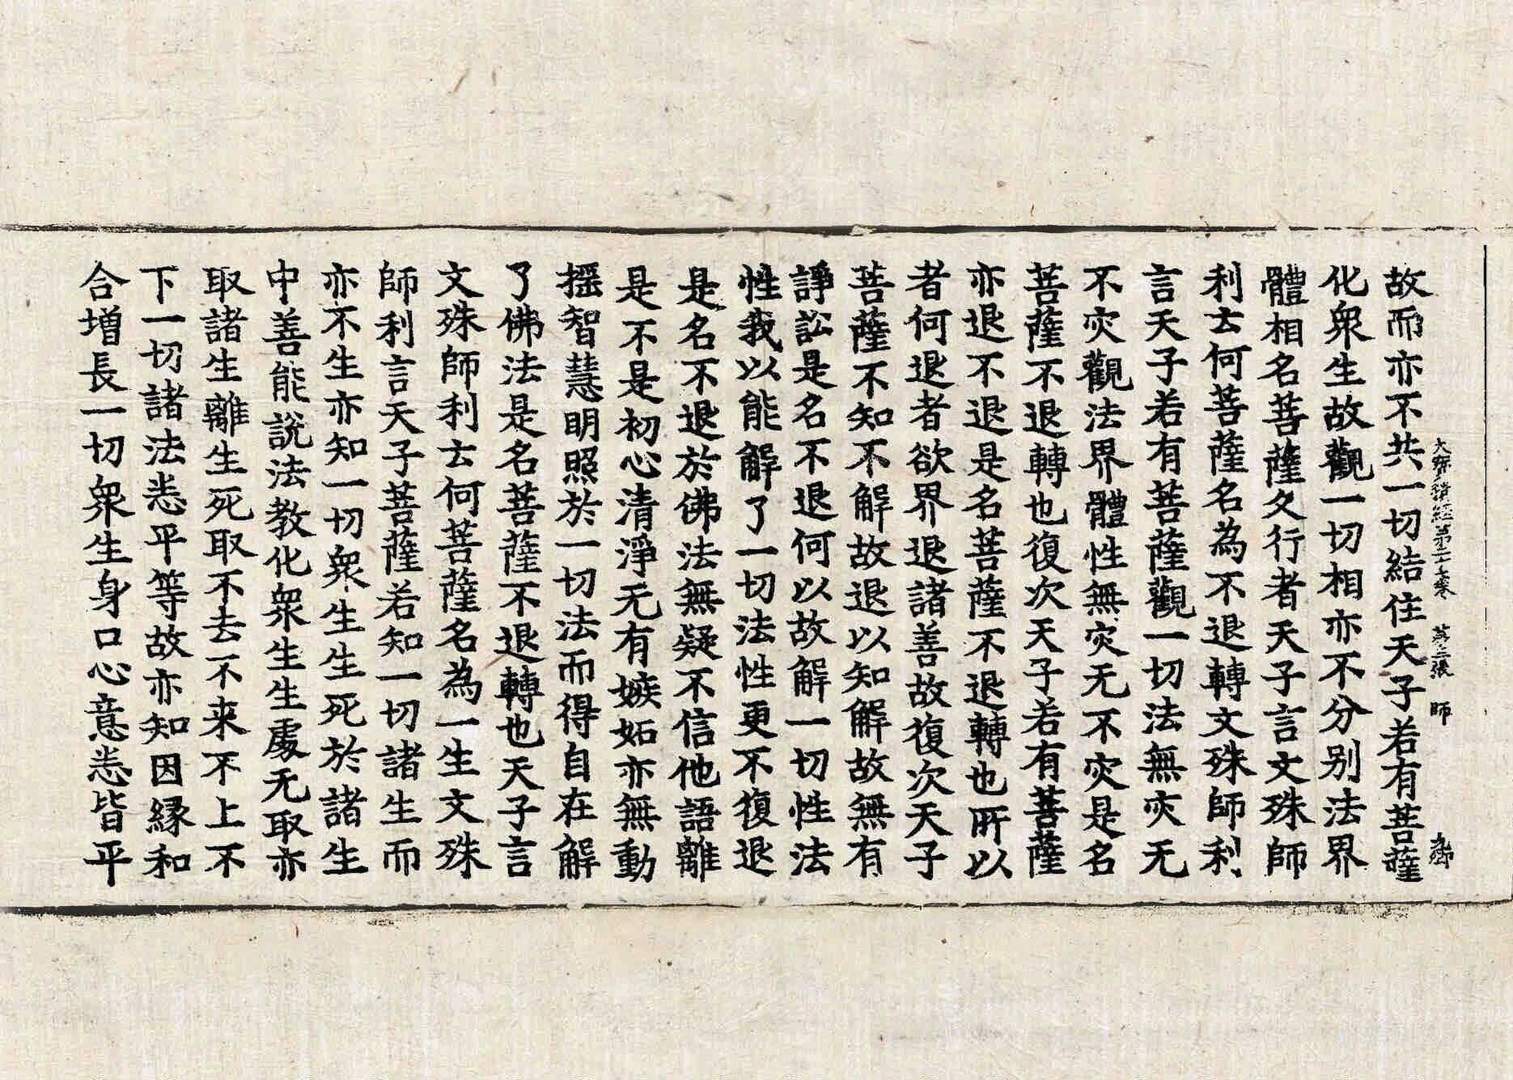 大寶積經第二十七卷 第三張 師
故而亦不共一切結住天子若有菩薩
化衆生故觀一切相亦不分别法界
體相名菩薩久行者天子言文殊師
利云何菩薩名為不退轉文殊師利
言天子若有菩薩觀一切法無灾无
不灾觀法界體性無灾无不灾是名
菩薩不退轉也復次天子若有菩薩
亦退不退是名菩薩不退轉也所以
者何退者欲界退諸善故復次天子
菩薩不知不解故退以知解故無有
諍訟是名不退何以故解一切性法
性我以能解了一切法性更不復退
是名不退於佛法無疑不信他語離
是不是初心清淨无有嫉妬亦無動
揺智慧明照於一切法而得自在解
了佛法是名菩薩不退轉也天子言
文殊師利云何菩薩名為一生文殊
師利言天子菩薩若知一切諸生而
亦不生亦知一切衆生生死於諸生
中善能說法教化衆生生處无取亦
取諸生離生死取不去不来不上不
下一切諸法悉平等故亦知因縁和
合增長一切衆生身口心意悉皆平